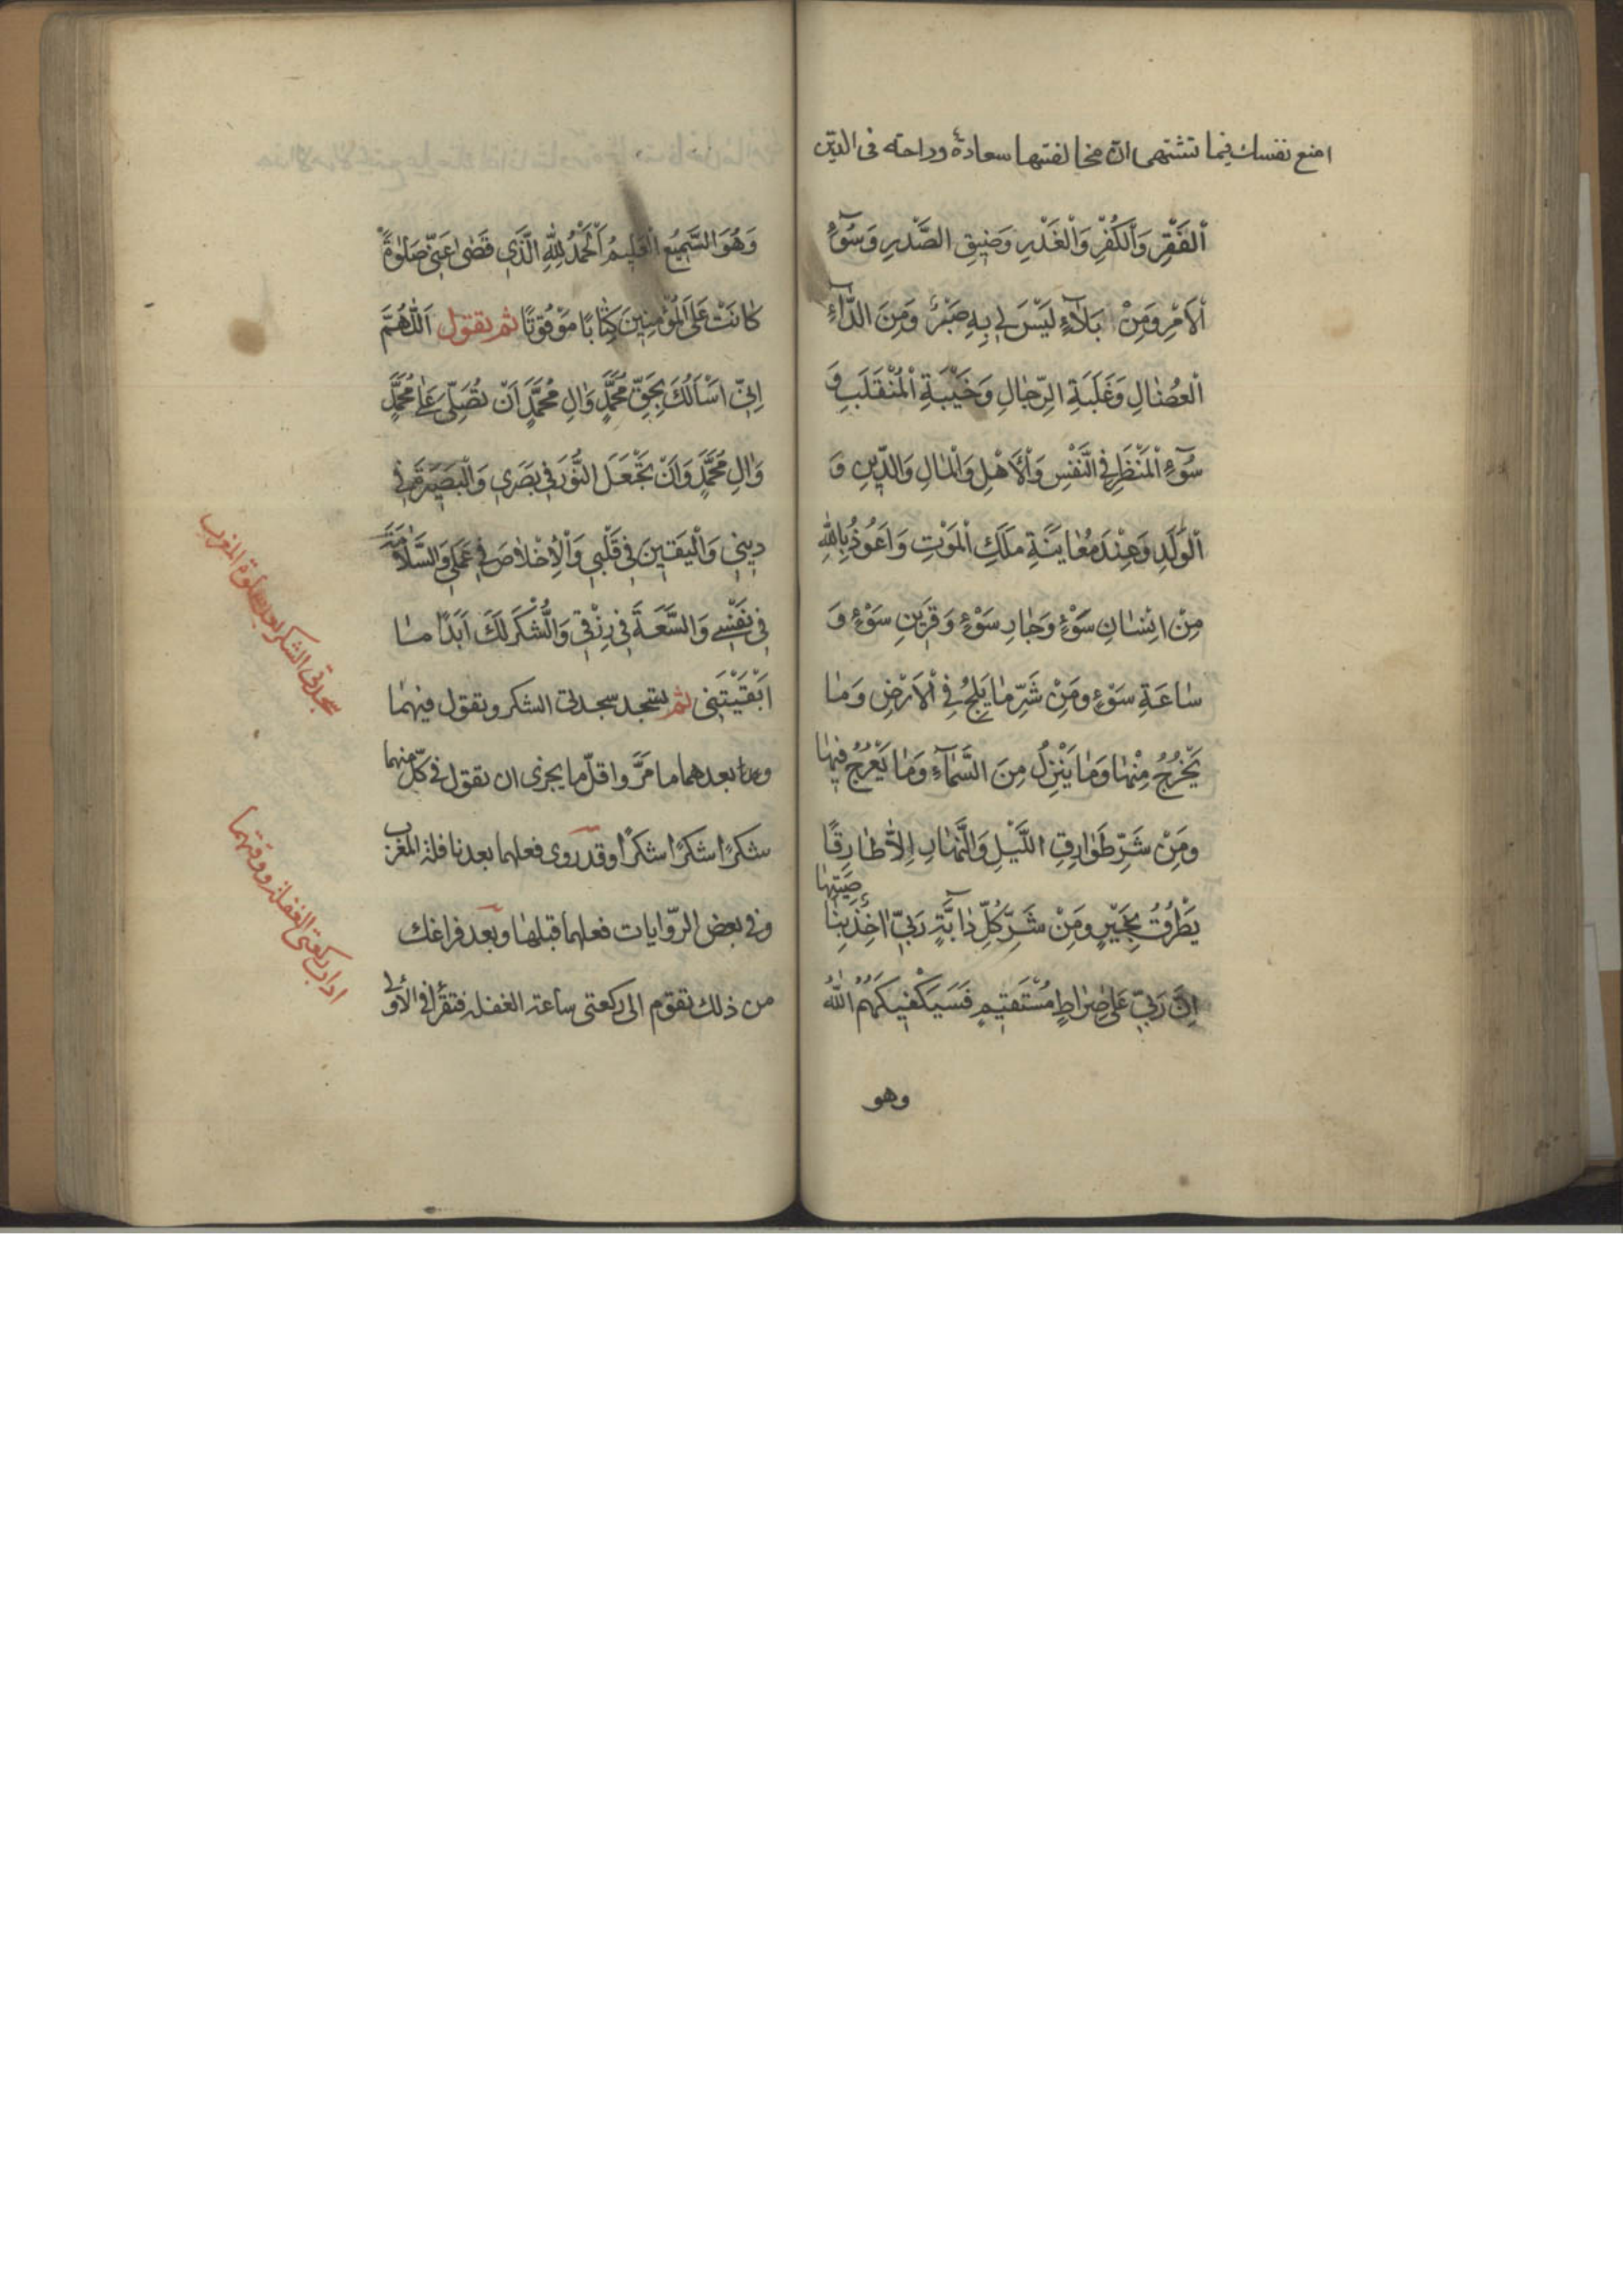 امنع نفسك فيما تشتهى انّ مخالفتها سعادة وراحته فى الدين
اَلْفَقْرِ وَاَلْكُفْرِ وَاَلْغَدْرِ وَضيقِ الصَّدْرِ وَسُوٓءِ
اْلاَمْرِ وَمِنْ بَلآءٍ لَيْسَ لي بِهِ صَبْرٌ وَمِنَ الدّآءِ
اْلعُضٰالِ وَغَلَبَةِ الرِّجٰالِ وَخَيْبَةِ اْلمُنْقَلَبِ وَ
سُوٓءِ اْلمَنْظَرِ فِي النَّفْسِ وَاْلاَهْلِ وَاْلمٰالِ وَالدّينِ وَ
اْلوَلَدِ وَعِنْدَ مُعٰايَنَةِ مَلَكِ اْلمَوْتِ وَاَعُوذُ بِاللهِ
مِنْ اِنْسٰانِ سَوْءٍ وَجٰارِ سَوْءٍ وَقَرينِ سَوْءٍ وَ
سٰاعَةِ سَوْءٍ ومَِنْ شَرِّ مٰا يَلِجُ فِي اْلاَرْضِ وَمٰا
يَخْرُجُ مِنْهٰا وَمٰا يَنْزِلُ مِنَ السَّمٰآءِ وَمٰا يَعْرُجُ فيهٰا
ومَِنْ شَرِّ طَوٰارِقِ اللَّيْلِ وَالنَّهٰارِ اِلاّٰ طٰارِقًا
يَطْرُقُ بِخَيْرٍ ومَِنْ شَرِّ كُلِّ دٰآبَّةٍ رَبّي اٰخِذٌ بِنٰاصِيَتِهٰا
اِنَّ رَبّي عَلىٰ صِرٰاطٍ مُسْتَقيمٍ فَسَيَكْفيكَهُمُ اللّٰهُ
وهو
وَهُوَ السَّميعُ اْلعَليمُ اَلْحَمْدُ لِلّٰهِ الَّذي قَضىٰ عَنّي صَلٰوةً
كٰانَتْ عَلَى اْلمُؤْمِنينَ كِتٰابًا مَوْقُوتًا ثم تقول اَللّٰهُمَّ
اِنّي اَسْاَلُكَ بِحَقِّ مُحَمَّدٍ وَاٰلِ مُحَمَّدٍ اَنْ تُصَلِّيَ عَلىٰ مُحَمَّدٍ
وَاٰلِ مُحَمَّدٍ وَاَنْ تَجْعَلَ النُّورَ في بَصَري وَاْلبَصيرَةَ في
ديني وَاْليَقينَ في قَلْبي وَاْلاِخْلاٰصَ في عَمَلي وَالسَّلاٰمَةَ
في نَفْسي وَالسَّعَةَ في رِزْقي وَالشُّكْرَ لَكَ اَبَدًا مٰا
اَبْقَيْتَني ثم تسجد سجدتى الشكر وتقول فيهما
وما بعدهما ما مَرَّ واقلّ ما يجزى ان تقول فى كلّ منهما
شكرًا شكرًا شكرًا وقد روى فعلهما بعد نافلة المغرب
وفى بعض الرّوايات فعلهما قبلها وبعد فراغك
من ذلك تقوم الى ركعتى ساعة الغفلة فتقرأ فى الأولى
سجدتى الشكر بعد صلوة المغرب
اداب ركعتى الغفلة ووقتهما